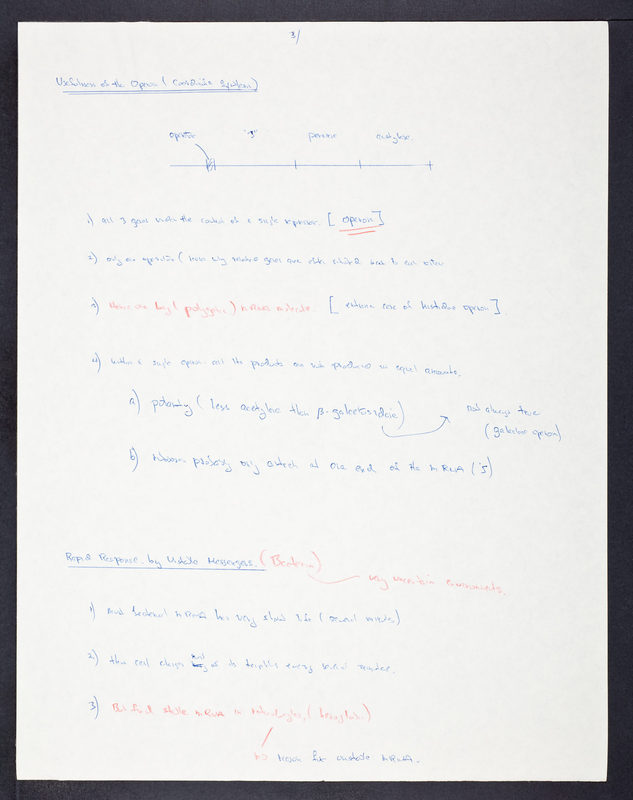 3/
Usefulness of the Operon (Coordinate System)
operator "z" permease acetylase
1) all 3 genes under the control of a single repressor. [Operon]
2) only one operator (
3) Hence one long (polygenic) mRNA molecule. [extreme case of histidine operon].
4) Within a single operon all the products are not produced in equal amounts.
a) polarity (less acetylase than β-galactosidase) not always true
(galactose operon)
b) ribosomes probably only attach at one end of the mRNA (5')
Rapid Response by Unstable Messengers. (Bacteria)
very uncertain environments.
1) most bacterial mRNA has very short life (several minutes)
2) thus cell changes of its templates every several minutes.
3) But find stable mRNA in reticulocytes, (hemoglobin)
no reason for unstable mRNA.